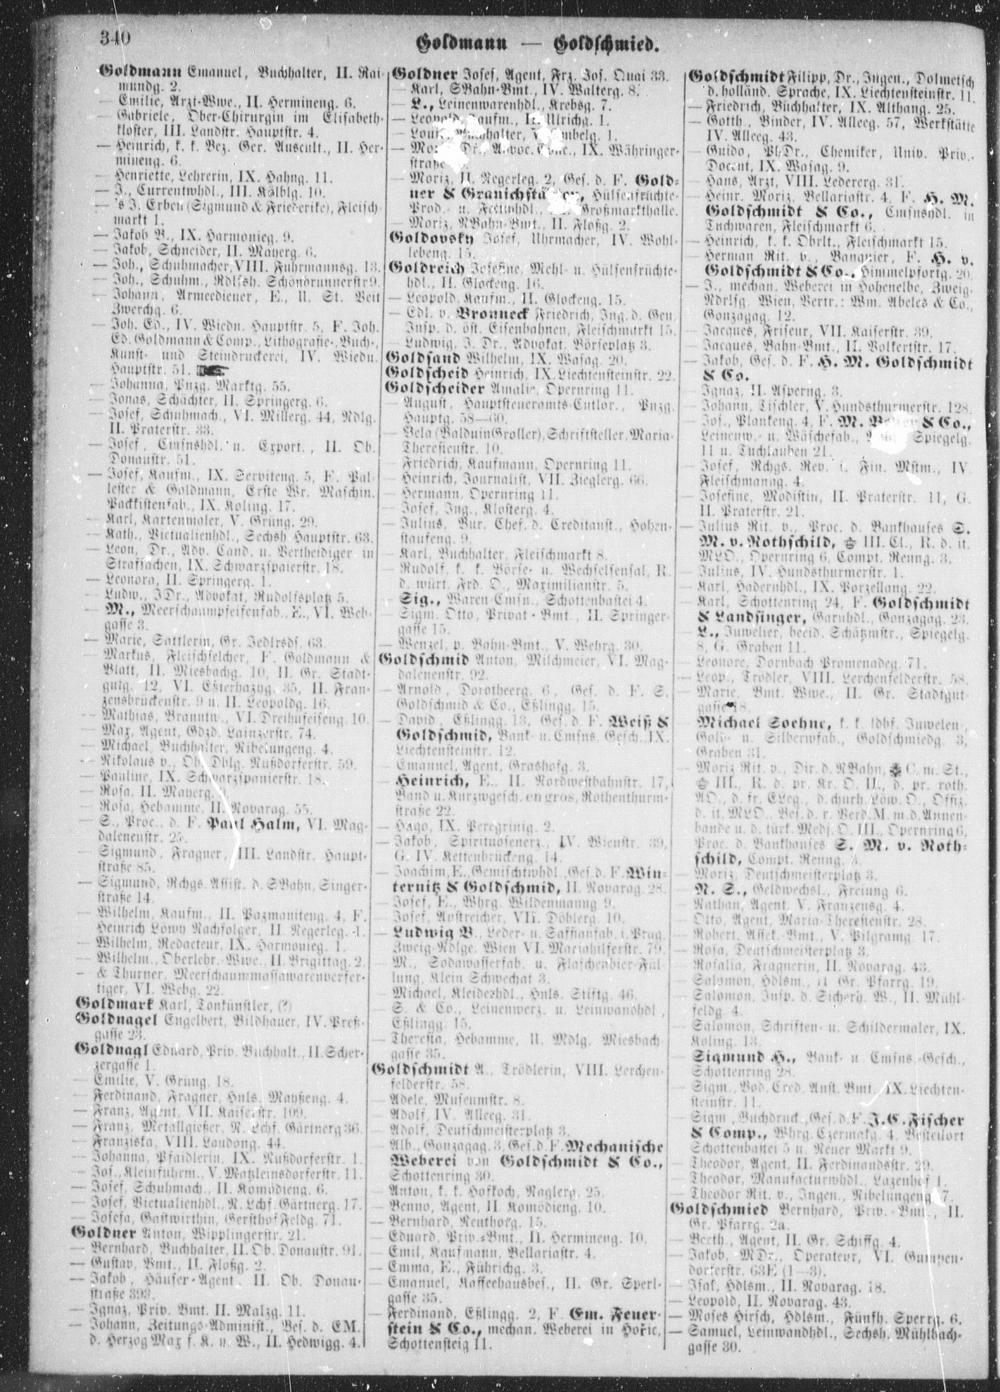 340
Goldmann — Goldschmied.
Goldmann Emanuel, Buchhalter, II. Rai-
mundg. 2.
— Emilie, Arzt-Wwe., II. Hermineng. 6.
— Gabriele, Ober-Chirurgin im Elisabeth-
kloster, III. Landstr. Hauptstr. 4.
— Heinrich, k. k. Bez. Ger. Auscult., II. Her-
mineng. 6.
— Henriette, Lehrerin, IX. Hahng. 11.
— J., Currentwhdl., III. Kölblg. 10.
— 's J. Erben (Sigmund & Friederike), Fleisch-
markt 1.
— Jakob B., IX. Harmonieg. 9.
— Jakob, Schneider, II. Mayerg. 6.
— Joh., Schuhmacher, VIII. Fuhrmannsg. 13.
— Joh., Schuhm., Rdlfsh. Schönbrunnerstr 9.
— Johann, Armediener, E., U. St. Veit
Zwerchg. 6.
— Joh. Ed., IV. Wiedn. Hauptstr. 5, F. Joh.
Ed. Goldmann & Comp., Lithografie-, Buch-,
Kunst- und Steindruckerei, IV. Wiedn.
Hauptstr. 51.
— Johanna, Pnzg. Marktg. 55.
— Jonas, Schächter, II. Springerg. 6.
— Josef, Schuhmach., VI. Millerg. 44, Ndlg.
II. Praterstr. 33.
— Josef, Emfnshdl. u. Export., II. Ob.
Donaustr. 51.
— Josef, Kaufm., IX. Serviteng. 5, F. Pal-
lester & Goldmann, Erste Wr. Maschin.
Packkistenfab., IX. Koling. 17.
— Karl, Kartenmaler, V. Grüng. 29.
— Kath., Victualienhdl., Sechsh Hauptstr. 63.
— Leon, Dr., Adv. Cand. u. Vertheidiger in
Strafsachen, IX. Schwarzspanierstr. 18.
— Leonora, II. Springerg. 1.
— Ludw., JDr., Advokat, Rudolfsplatz 5.
— M., Meerschaumpfeifenfab., E., VI. Web-
gasse 3.
— Marie, Sattlerin, Gr. Jedlrsdf. 63.
— Markus, Fleischselcher, F. Goldmann &
Blatt, II. Miesbachg. 10, II. Gr. Stadt-
gutg. 12, VI. Eßterhazyg. 35, II. Fran-
zensbrückenstr. 9 u. II. Leopoldg. 16.
— Mathias, Branntw., VI. Dreihufeiseng. 10.
— Max, Agent, Gdzd. Lainzerstr. 74.
— Michael, Buchhalter, Nibelungeng. 4.
— Nikolaus v., Ob. Dblg. Nußdorferstr. 59.
— Pauline, IX. Schwarzspanierstr. 18.
— Rosa, II. Mayerg.
— Rosa, Hebamme, II. Novarag. 55.
— S., Proc. d. F. Paul Halm, VI. Mag-
dalenenstr. 25.
— Sigmund, Fragner, III. Landstr. Haupt-
straße 85.
— Sigmund, Rchgs. Assist. d. SBahn, Singer-
straße 14.
— Wilhelm, Kaufm., II. Pazmaniteng. 4, F.
Heinrich Löwy Nachfolger, II. Negerleg. 4.
— Wilhelm, Redacteur, IX. Harmonieg. 1.
— Wilhelm., Oberlehr. Wwe., II. Brigittag. 2.
— & Thurner, Meerschaummassawarenverfer-
tiger, VI. Webg. 22.
Goldmark Karl, Tonkünstler, (?)
Goldnagel Engelbert, Bildhauer, IV. Preß-
gasse 23.
Goldnagl Eduard, Priv. Buchhalt., II. Scher-
zergasse 1.
— Emilie, V. Grüng. 18.
— Ferdinand, Fragner, Hnls. Maysseng. 4.
— Franz, Agent, VII. Kaiserstr. 109.
— Franz, Metallgießer, N. Lchf. Gärtnerg 36.
— Franziska, VIII. Laudong. 44.
— Johanna, Pfaidlerin, IX. Nußdorferstr. 1.
— Jos., Kleinfuhrm., V. Matzleinsdorferstr. 11.
— Josef, Schuhmach., II. Komödieng. 6.
— Josef, Victualienhdl., N. Lchf. Gärtnerg. 17.
— Josefa, Gastwirthin, Gersthof Feldg. 71.
Goldner Anton, Wipplingerstr. 21.
— Bernhard, Buchhalter, II. Ob. Donaustr. 91.
— Gustav, Bmt., II. Floßg. 2.
— Jakob, Häuser-Agent, II. Ob. Donau-
straße 393.
— Ignaz, Priv. Bmt. II. Malzg. 11.
— Johann, Zeitungs-Administ., Bes. d. EM.
d. Herzog Max f. K. u. W., II. Hedwigg. 4.
Goldner Josef, Agent, Frz. Jos. Quai 33.
— Karl, SBahn-Bmt., IV. Walterg. 8.
— L., Leinenwarenhdl., Krebsg. 7.
— Leopold, Kaufm., Ulrichg. 1.
— Buchhalter,
— Dr., Advoc. IX. Währinger-
straße
— Moriz, II. Negerleg. 2, Ges. d. F. Gold-
ner & Granichstädter, Hülsenfrüchte-
Prod.- u. Fettwhdl., Großmarkthalle.
— Moriz, NBahn-Bmt., II. Floßg. 2.
Goldovsky Josef, Uhrmacher, IV. Wohl-
lebeng. 15.
Goldreich Josefine, Mehl- u. Hülsenfrüchte-
hdl., II. Glockeng. 16.
— Leopold, Kaufm., II. Glockeng. 15.
— Edl. v. Bronneck Friedrich, Ing. d. Gen.
Insp. d. öst. Eisenbahnen, Fleischmarkt 15.
— Ludwig, J. Dr., Advokat, Börseplatz 3.
Goldsand Wilhelm, IX. Wasag. 20.
Goldscheid Heinrich, IX. Liechtensteinstr. 22.
Goldscheider Amalie, Opernring 11.
— August, Hauptsteueramts-Cntlor., Pnzg.
Hauptg. 58—60.
— Bela (Balduin Groller), Schriftsteller, Maria-
Theresienstr. 10.
— Friedrich, Kaufmann, Opernring 11.
— Heinrich, Journalist, VII. Zieglerg. 66.
— Hermann, Opernring 11.
— Josef, Ing., Klosterg. 4.
— Julius, Bur. Chef. d. Creditanst., Hohen-
staufeng. 9.
— Karl, Buchhalter, Fleischmarkt 8.
— Rudolf, k. k. Börse- u. Wechselsensal, R.
d. würt. Frd. O., Maximilianstr. 5.
— Sig., Waren Cmsn., Schottenbastei 4.
— Sigm. Otto, Privat-Bmt., II. Springer-
gasse 15.
— Wenzel, p. Bahn-Bmt., V. Wehrg. 30.
Goldschmid Anton, Milchmeier, VI. Mag-
dalenenstr. 92.
— Arnold, Dorotheerg. 6, Ges. d. F. S.
Goldschmid & Co., Eßlingg. 15.
— David, Eßlingg. 13, Ges. d. F. Weiß &
Goldschmid, Bank- u. Cmsns. Gesch. IX.
Liechtensteinstr. 12.
— Emanuel, Agent, Grashofg. 3.
— Heinrich, E., II. Nordwestbahnstr. 17,
Band u. Kurzwgesch. en gros, Rothenthurm-
straße 22.
— Hugo, IX. Peregring. 2.
— Jakob, Spirituosenerz., IV. Wienstr. 39,
G. IV. Kettenbrückeng. 14.
— Joachim, E., Gemischtwhdl., Ges. d. F. Win-
ternitz & Goldschmid, II. Novarag. 28.
— Josef, E., Whrg. Wildenmanng 9.
— Josef, Anstreicher, VII. Döblerg. 10.
— Ludwig B., Leder- u. Saffianfab. i. Prag,
Zweig-Ndlge. Wien VI. Mariahilferstr. 79.
— M., Sodawasserfab. u. Flaschenbier-Fül-
lung, Klein Schwechat 3.
— Michael, Kleiderhdl., Hnls. Stiftg. 46.
— S. & Co., Leinenwerz. u. Leinwanohdl.,
Eßlingg. 15.
— Theresia, Hebamme, U. Mdlg. Miesbach-
gasse 35.
Goldschmidt A., Trödlerin, VIII. Lerchen-
felderstr. 58.
— Adele, Museumstr. 8.
— Adolf, IV. Alleeg. 31.
— Adolf, Deutschmeisterplatz 3.
— Alb., Gonzagag. 3, Ges. d. F. Mechanische
Weberei von Goldschmidt & Co.,
Schottenring 30.
— Anton, k. k. Hofkoch, Naglerg. 25.
— Benno, Agent, II. Komödieng. 10.
— Bernhard, Neuthorg. 15.
— Eduard, Priv.-Bmt., II. Hermineng. 10.
— Emil, Kaufmann, Bellariastr. 4.
— Emma, E., Führichg. 3.
— Emanuel, Kaffeehausbes., II. Gr. Sperl-
gasse 35.
— Ferdinand, Eßlingg. 2, F. Em. Feuer-
stein & Co., mechan. Weberei in Hořic,
Schottensteig 11.
Goldschmidt Filipp, Dr., Ingen., Dolmetsch
d. holländ. Sprache, IX. Liechtensteinstr. 11.
— Friedrich, Buchhalter, IX. Althang. 25.
— Gotth., Binder, IV. Alleeg. 57, Werkstätte
IV. Alleeg. 43.
— Guido, PhDr., Chemiker, Univ. Priv.-
Docent, IX. Wasag. 9.
— Hans, Arzt, VIII. Ledererg. 31.
— Heinr. Moriz, Bellariastr. 4, F. H. M.
Goldschmidt & Co., Cmsnshdl. in
Tuchwaren, Fleischmarkt 6.
— Heinrich, k. k. Obrlt., Fleischmarkt 15.
— Herman Rit. v., Banquier, F. H. v.
Goldschmidt & Co., Himmelpfortg. 20.
— J., mechan. Weberei in Hohenelbe, Zweig-
Ndrlsg. Wien, Vertr.: Wm. Abeles & Co.,
Gonzagag. 12.
— Jacques, Friseur, VII. Kaiserstr. 39.
— Jacques, Bahn-Bmt., II. Volkertstr. 17.
— Jakob, Ges. d. F. H. M. Goldschmidt
& Co.
— Ignaz, II. Asperng. 3.
— Johann, Tischler, V. Hundsthurmerstr. 128.
— Jos., Plankeng. 4, F. M. & Co.,
Leinenw.- u. Wäschefab., Spiegelg.
11 u. Tuchlauben 21.
— Josef, Rchgs. Rev. i. Fin. Mstm., IV.
Fleischmanng. 4.
— Josefine, Modistin, II. Praterstr. 11, G.
II. Praterstr. 21.
— Julius Rit. v., Proc. d. Bankhauses S.
M. v. Rothschild, III. Cl., R. d. it.
MLO., Opernring 6, Compt. Renng. 3.
— Julius, IV. Hundsthurmerstr. 1.
— Karl, Hadernhdl., IX. Porzellang. 22.
— Karl, Schottenring 24, F. Goldschmidt
& Landsinger, Garnhdl., Gonzagag. 23.
— L., Juwelier, beeid. Schätzmstr., Spiegelg.
8, G. Graben 11.
— Leonore, Dornbach Promenadeg. 71.
— Leop., Trödler, VIII. Lerchenfelderstr. 58.
— Marie, Bmt. Wwe., II. Gr. Stadtgut-
gasse 8.
— Michael Soehne, k. k. ldbf. Juwelen-,
Gold- u. Silberwfab., Goldschmiedg. 3,
Graben 31.
— Moriz Rit. v., Dir. d. NBahn, C. m. St.,
III., R. d. pr. Kr. O. II., d. pr. roth.
AO., d. fr. ELeg., d. churh. Löw. O., Offiz.
d. it. MLO., Bes. d. r. Verd. M. m. d. Annen-
bande u. d. türk. Medj. O. III., Opernring 6,
Proc. d. Bankhauses S. M. v. Roth-
schild, Compt. Renng. 3.
— Moriz, Deutschmeisterplatz 3.
— N. S., Geldwechsl., Freiung 6.
— Nathan, Agent, V. Franzensg. 4.
— Otto, Agent, Maria-Theresienstr. 28.
— Robert, Assek.-Bmt., V. Pilgramg. 17.
— Rosa, Deutschmeisterplatz 3.
— Rosalia, Fragnerin, II. Novarag. 43.
— Salomon, Hdlsm., II Gr. Pfarrg. 19.
— Salomon, Insp. d. Sicherh. W., II. Mühl-
feldg. 4.
— Salomon, Schriften- u. Schildermaler, IX.
Koling. 13.
— Sigmund H., Bank- u. Cmsns.-Gesch.,
Schottenring 28.
— Sigm., Bod. Cred. Anst. Bmt., IX. Liechten-
steinstr. 11.
— Sigm., Buchdruck., Ges. d. F. J. C. Fischer
& Comp., Whrg. Czermakg. 4, Bestellort
Schottenbastei 5 u. Neuer Markt 9.
— Theodor, Agent, II. Ferdinandsstr. 29.
— Theodor, Manufacturwhdl., Lazenhof 1.
— Theodor Rit. v., Ingen., Nibelungeng. 7.
Goldschmied Bernhard, Priv.-Bmt., II.
Gr. Pfarrg. 2a.
— Berth., Agent, II. Gr. Schiffg. 4.
— Jakob, MDr., Operateur, VI. Gumpen-
dorferstr. 63E (1—3).
— Isak, Hdlsm., II. Novarag. 18.
— Leopold, II. Novarag. 43.
— Moses Hirsch, Hdlsm., Fünfh. Sperrg. 6.
— Samuel, Leinwandhdl., Sechsh. Mühlbach-
gasse 30.